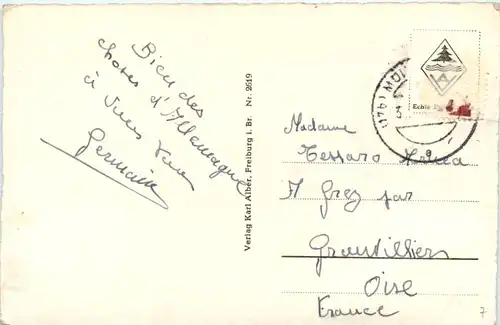 Bien des
choses d'Allemagne
à vous tous
Germaine
Verlag Karl Alber, Freiburg i. Br. Nr. 2619
(17b)
Echte
Madame
Tessaro
A Grez par
Grandvilliers
Oise
France
7